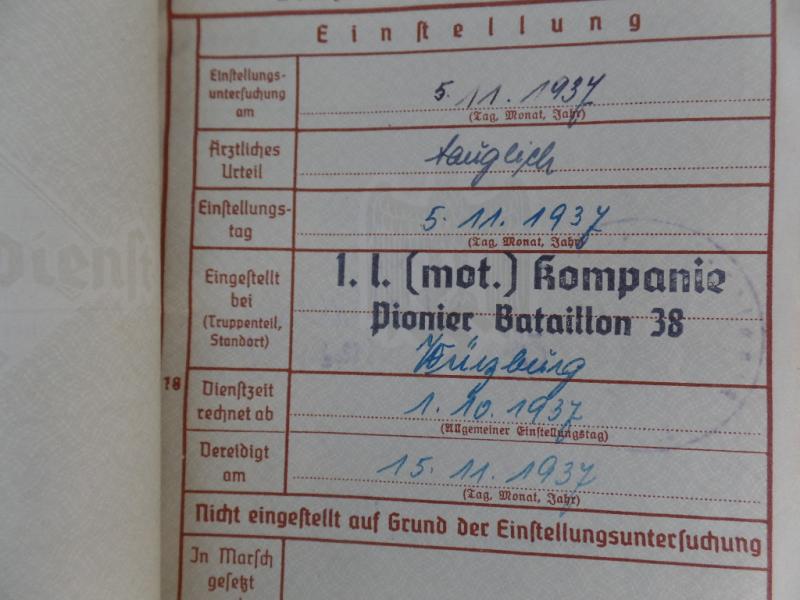 Einstellung
Einstellungs-
untersuchung
am
5. 11. 1937
(Tag, Monat, Jahr)
Ärztliches
Urteil
tauglich
Einstellungs-
tag
5. 11. 1937
(Tag, Monat, Jahr)
Eingestellt
bei
(Truppenteil,
Standort)
1. l. (mot.) Kompanie
Pionier Bataillon 38
Würzburg
18
Dienstzeit
rechnet ab
1. 10. 1937
(Allgemeiner Einstellungstag)
Vereidigt
am
15. 11. 1937
(Tag, Monat, Jahr)
Nicht eingestellt auf Grund der Einstellungsuntersuchung
In Marsch
gesetzt